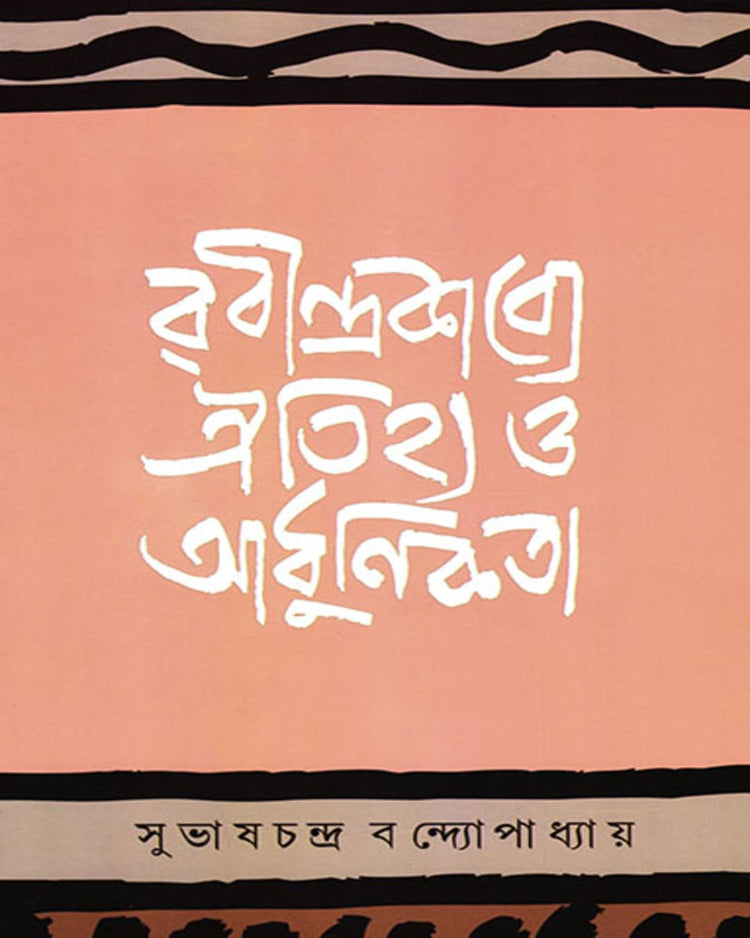 রবীন্দ্রকাব্যে
ঐতিহ্য ও
আধুনিকতা
সুভাষচন্দ্র বন্দ্যোপাধ্যায়